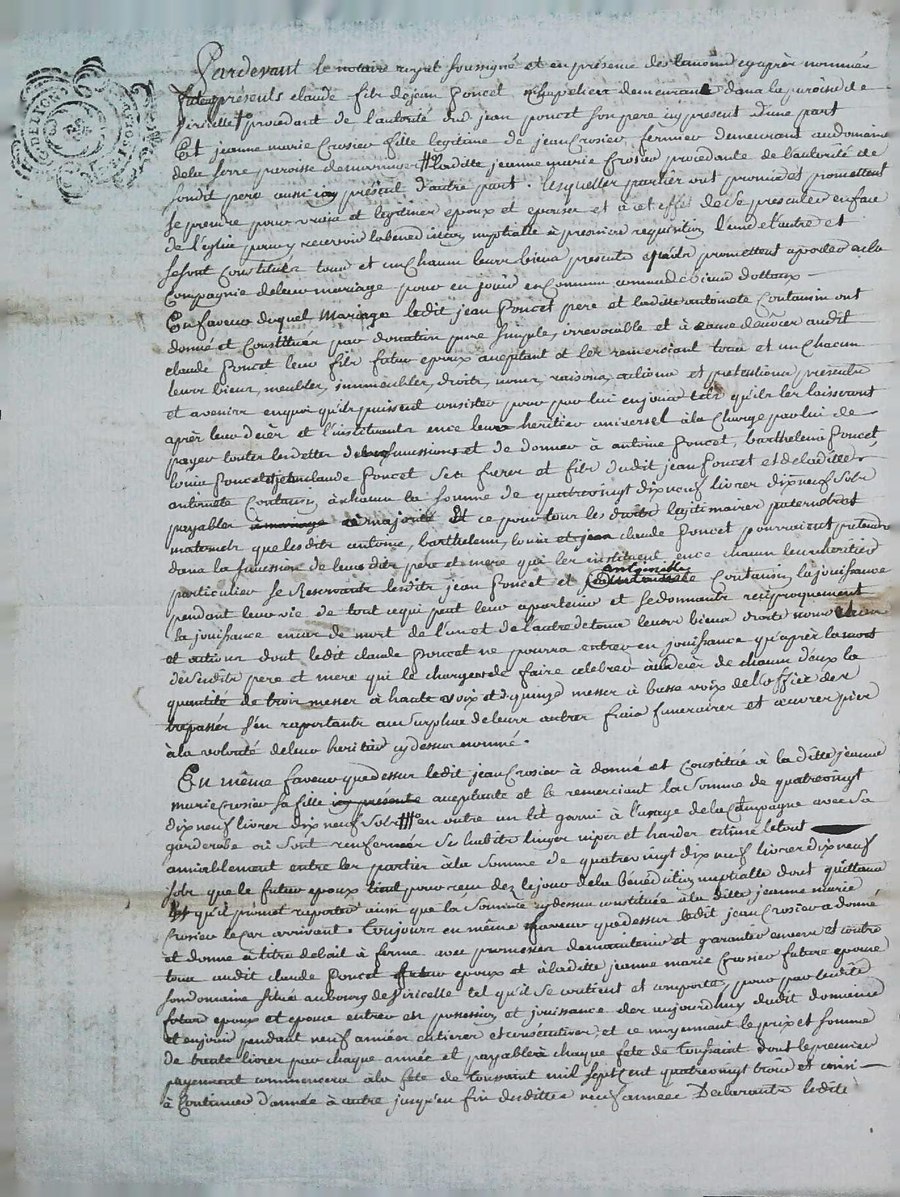 Pardevant le notaire royal soussigné et en presence des temoins cy après nommés
furent presents claude fils de jean Poncet chapelier demeurant dans la paroisse de
Viricelle procedant de l'autorité dud jean poncet son pere icy present d'une part
Et jeanne marie Crosier fille legitime de jean Crosier fermier demeurant au domaine
dela serre paroisse de laditte jeanne marie Crosier procedante de l'autorité de
sondit pere aussi icy présent d'autre part. Lesquelles parties ont promis et promettent
se prendre pour vrais et legitimes epoux et epouse et à cet effet de se presenter en face
de l'église pour y recevoir la benediction nuptialle à premiere requisition l'une de l'autre et
se sont Constitués tous et un Chaum leurs biens presents quils promettent aporter a la
Compagnie de leur mariage pour en jouir en Commun comme de bien dottaux
En faveur duquel Mariage ledit jean Poncet pere et laditte antoinete Coutanin ont
donné et Constitués par donation pure simple, irrevocable et à cause de audit
claude Poncet leur fils futur epoux aceptant et les remerciant tous et un Chacun
leurs biens, meubles, immeubles, droits, noms, raisons, actions et pretentions presents
et avenirs en quoi qu'ils puissent consister pour par lui en jouir tels qu'ils les laisseront
après leur decès et l'instituants en ce leur heritier universel à la Charge par lui de
payer toutes les dettes de leurs successions et de donner à antoine Poncet, barthelemi Poncet
louis Poncet et claude Poncet ses freres et fils dudit jean Poncet et de laditte
antoinete Coutanin à chacun la somme de quatrevingt dix neuf livres dix neuf sols
payables majorité Et ce pour tous les droits legitimaires paternels et
maternels que lesdits antoine, barthelemi, louis et jean claude Poncet pourroient prétendre
dans la succession de leurs dits pere et mere qui les instituent en ce chacun leurs héritiers
particuliers se Reservants lesdits jean Poncet et antoinette Coutanin la jouissance
pendant leur vie de tout ce qui peut leur apartenir et se donnants reciproquement
la jouissance en cas de mort de l'un et de l'autre de tous leurs biens droits noms
et actions dont ledit claude Poncet ne pourra entrer en jouissance qu'après la mort
desesdits pere et mere qui le chargent de faire celebrer au decès de chacun d'eux la
quantité de trois messes à haute voix et de quinze messes à basse voix de l'office des
trepassés s'en raportants au surplus de leurs autres frais funeraires et œuvres pies
à la volonté de leur heritier cy dessus nommé.
En même faveur que dessus ledit jean Crosier à donné et Constitué à la ditte jeanne
marie Crosier sa fille icy présente aceptante et le remerciant la Somme de quatrevingt
dix neuf livres dix neuf sols en outre un lit garni à l'usage de la Campagne avec sa
garderobe où sont renfermés ses habits linges nipes et hardes estimé le tout
amiablement entre les parties à la somme de quatrevingt dix neuf livres dix neuf
sols que le futur epoux pour reçu dez le jour de la Bénédiction nuptialle dont quittance
Et qu'il promet raporter ainsi que la somme cy dessus constituée à la ditte jeanne marie
Crosier le cas arrivant. Toujours en même faveur que dessus ledit jean Crosier a donné
et donne à titre de bail à ferme avec promesses de maintenir et garantir envers et contre
tous audit claude Poncet futur epoux et à laditte jeanne marie Crosier future epouse
son domaine situé au bourg de Viricelle tel qu'il se contient et comporte, pour par lesdits
futur epoux et epouse entrer en possession et jouissance des aujourdhuy dudit domaine
et en jouir pendant neuf années entieres et consecutives, et ce moyennant le prix et somme
de trente livres pour chaque année et payable à chaque fête de Toussaint dont le premier
payement commencera à la fête de toussaint mil sept cent quatrevingt trois et ainsi
à Continuer d'année à autre jusqu'en fin desdittes neuf années Declarants lesdits